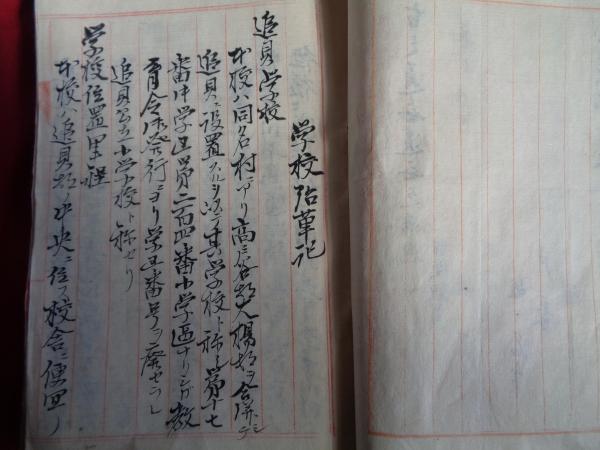 学校沿革記
追貝学校
本校ハ同名村ニアリ高戸谷大楊ヲ合併シテ
追貝ニ設置スルヲ以テ其学校ト称シ第十七
番中学区第二百四番小学区ナリシガ教
育令御発行ニヨリ学区番号ヲ廃セラレ
追貝公立小学校ト称セリ
学校位置里程
本校ハ追貝村ノ中央ニ位シ校舎ニ便宜ノ